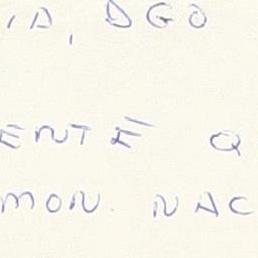 IA, DGO
ENTE Q
MON. NAC